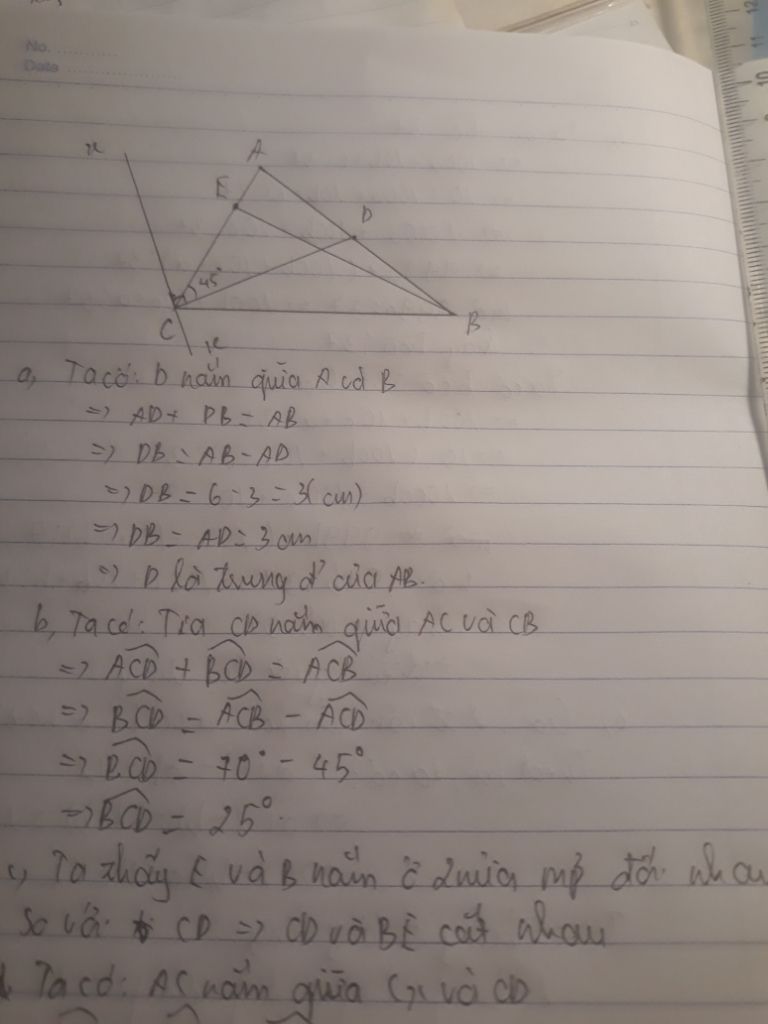 No. ............
Date ....................
x
A
E
D
45°
C
B
x
a, Ta có: D nằm giữa A và B
=> AD + DB = AB
=> DB = AB - AD
=> DB = 6 - 3 = 3(cm)
=> DB = AD = 3 cm
=> D là trung đ' của AB.
b, Ta có: Tia CD nằm giữa AC và CB
=> ACD + BCD = ACB
=> BCD = ACB - ACD
=> BCD = 70° - 45°
=> BCD = 25°.
c, Ta thấy E và B nằm ở 2 nửa mp đối nhau
so với CD => CD và BE cắt nhau
Ta có: AC nằm giữa Cx và CD
12
11
10